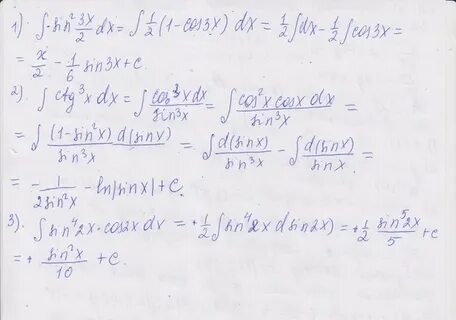 1) ∫ sin² 3x/2 dx = ∫ 1/2 (1 - cos3x) dx = 1/2 ∫dx - 1/2 ∫cos3x =
= x/2 - 1/6 sin3x + c.
2) ∫ ctg³x dx = ∫ cos³x dx/sin³x = ∫ cos²x cosx dx/sin³x =
= ∫ (1-sin²x) d(sinx)/sin³x = ∫ d(sinx)/sin³x - ∫ d(sinx)/sinx =
= - 1/2sin²x - ln|sinx| + C.
3) ∫ sin⁴2x·cos2x dx = +1/2 ∫ sin⁴2x d sin2x) = +1/2 sin⁵2x/5 + c
= + sin²x/10 + c.